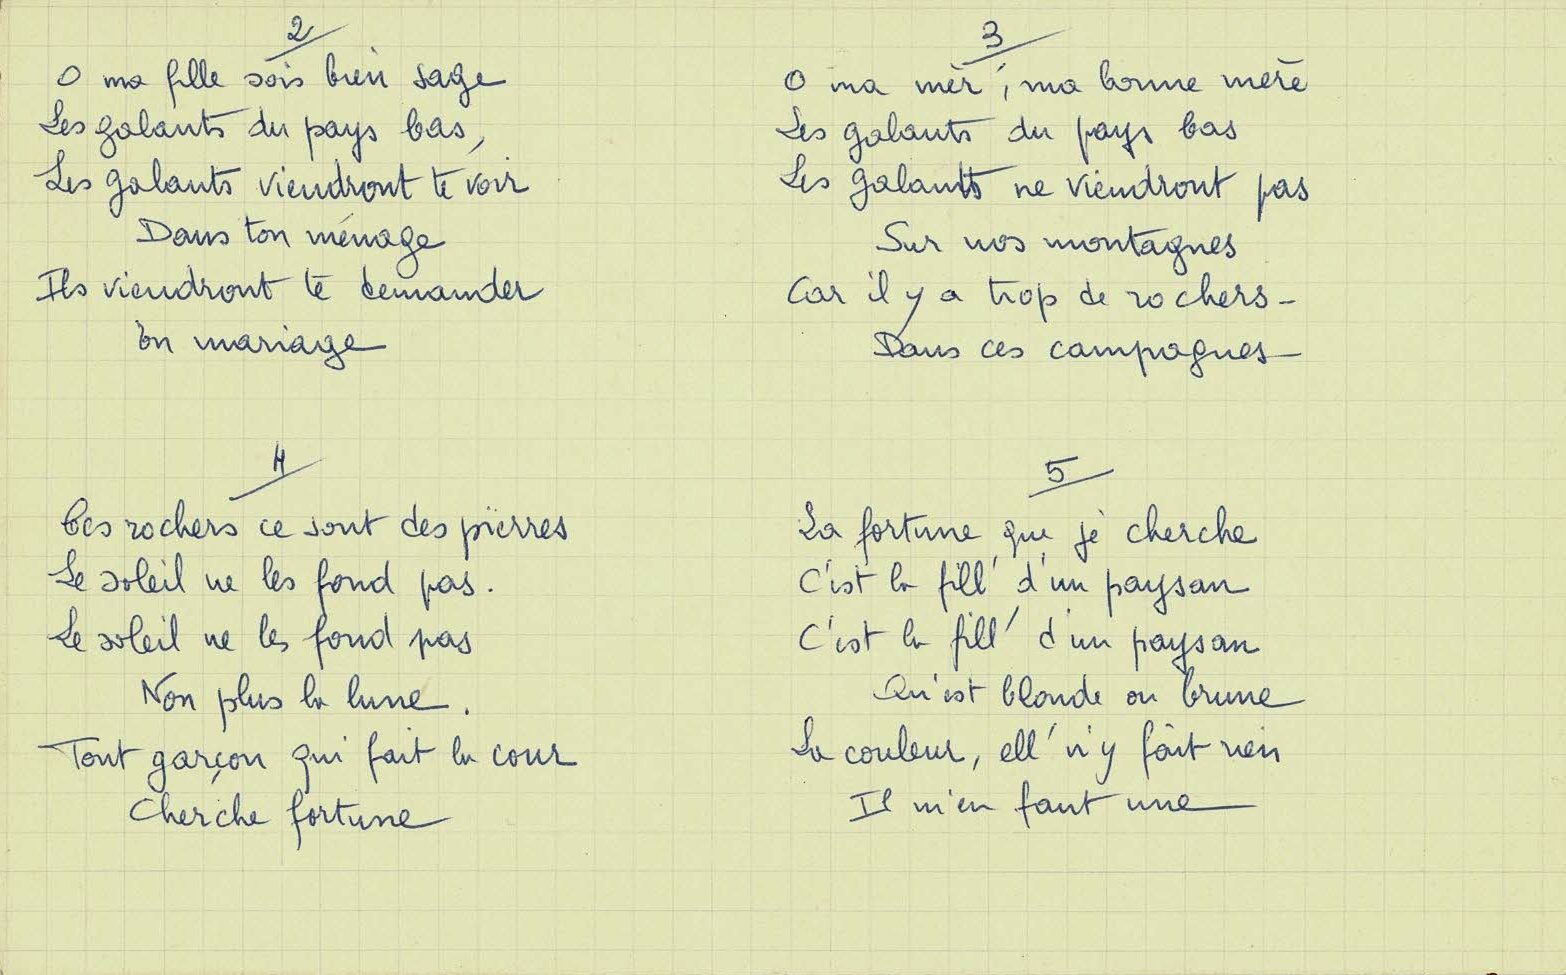 2
O ma fille sois bien sage
Les galants du pays bas,
Les galants viendront te voir
Dans ton ménage
Ils viendront te demander
En mariage
3
O ma mèr', ma bonne mère
Les galants du pays bas
Les galants ne viendront pas
Sur nos montagnes
Car il y a trop de rochers -
Dans ces campagnes
4
Ces rochers ce sont des pierres
Le soleil ne les fond pas.
Le soleil ne les fond pas
Non plus la lune.
Tout garçon qui fait la cour
Cherche fortune
5
La fortune que je cherche
C'est la fill' d'un paysan
C'est la fill' d'un paysan
Qu'est blonde ou brune
La couleur, ell' n'y fait rien
Il m'en faut une